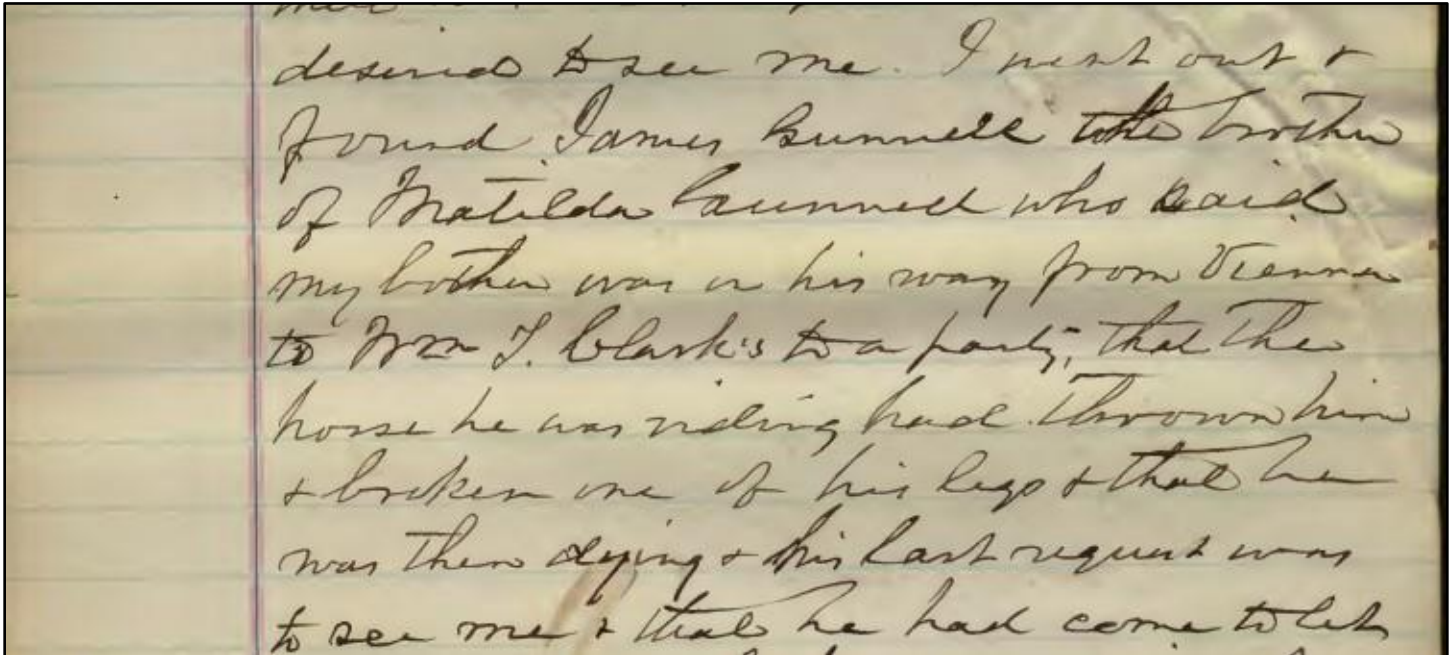 desired to see me. I went out &
found James Gunnell the brother
of Matilda Gunnell who said
my brother was on his way from Vienna
to Wm T. Clark's to a party, that the
horse he was riding had thrown him
& broken one of his legs & that he
was then dying & his last request was
to see me & that he had come to let